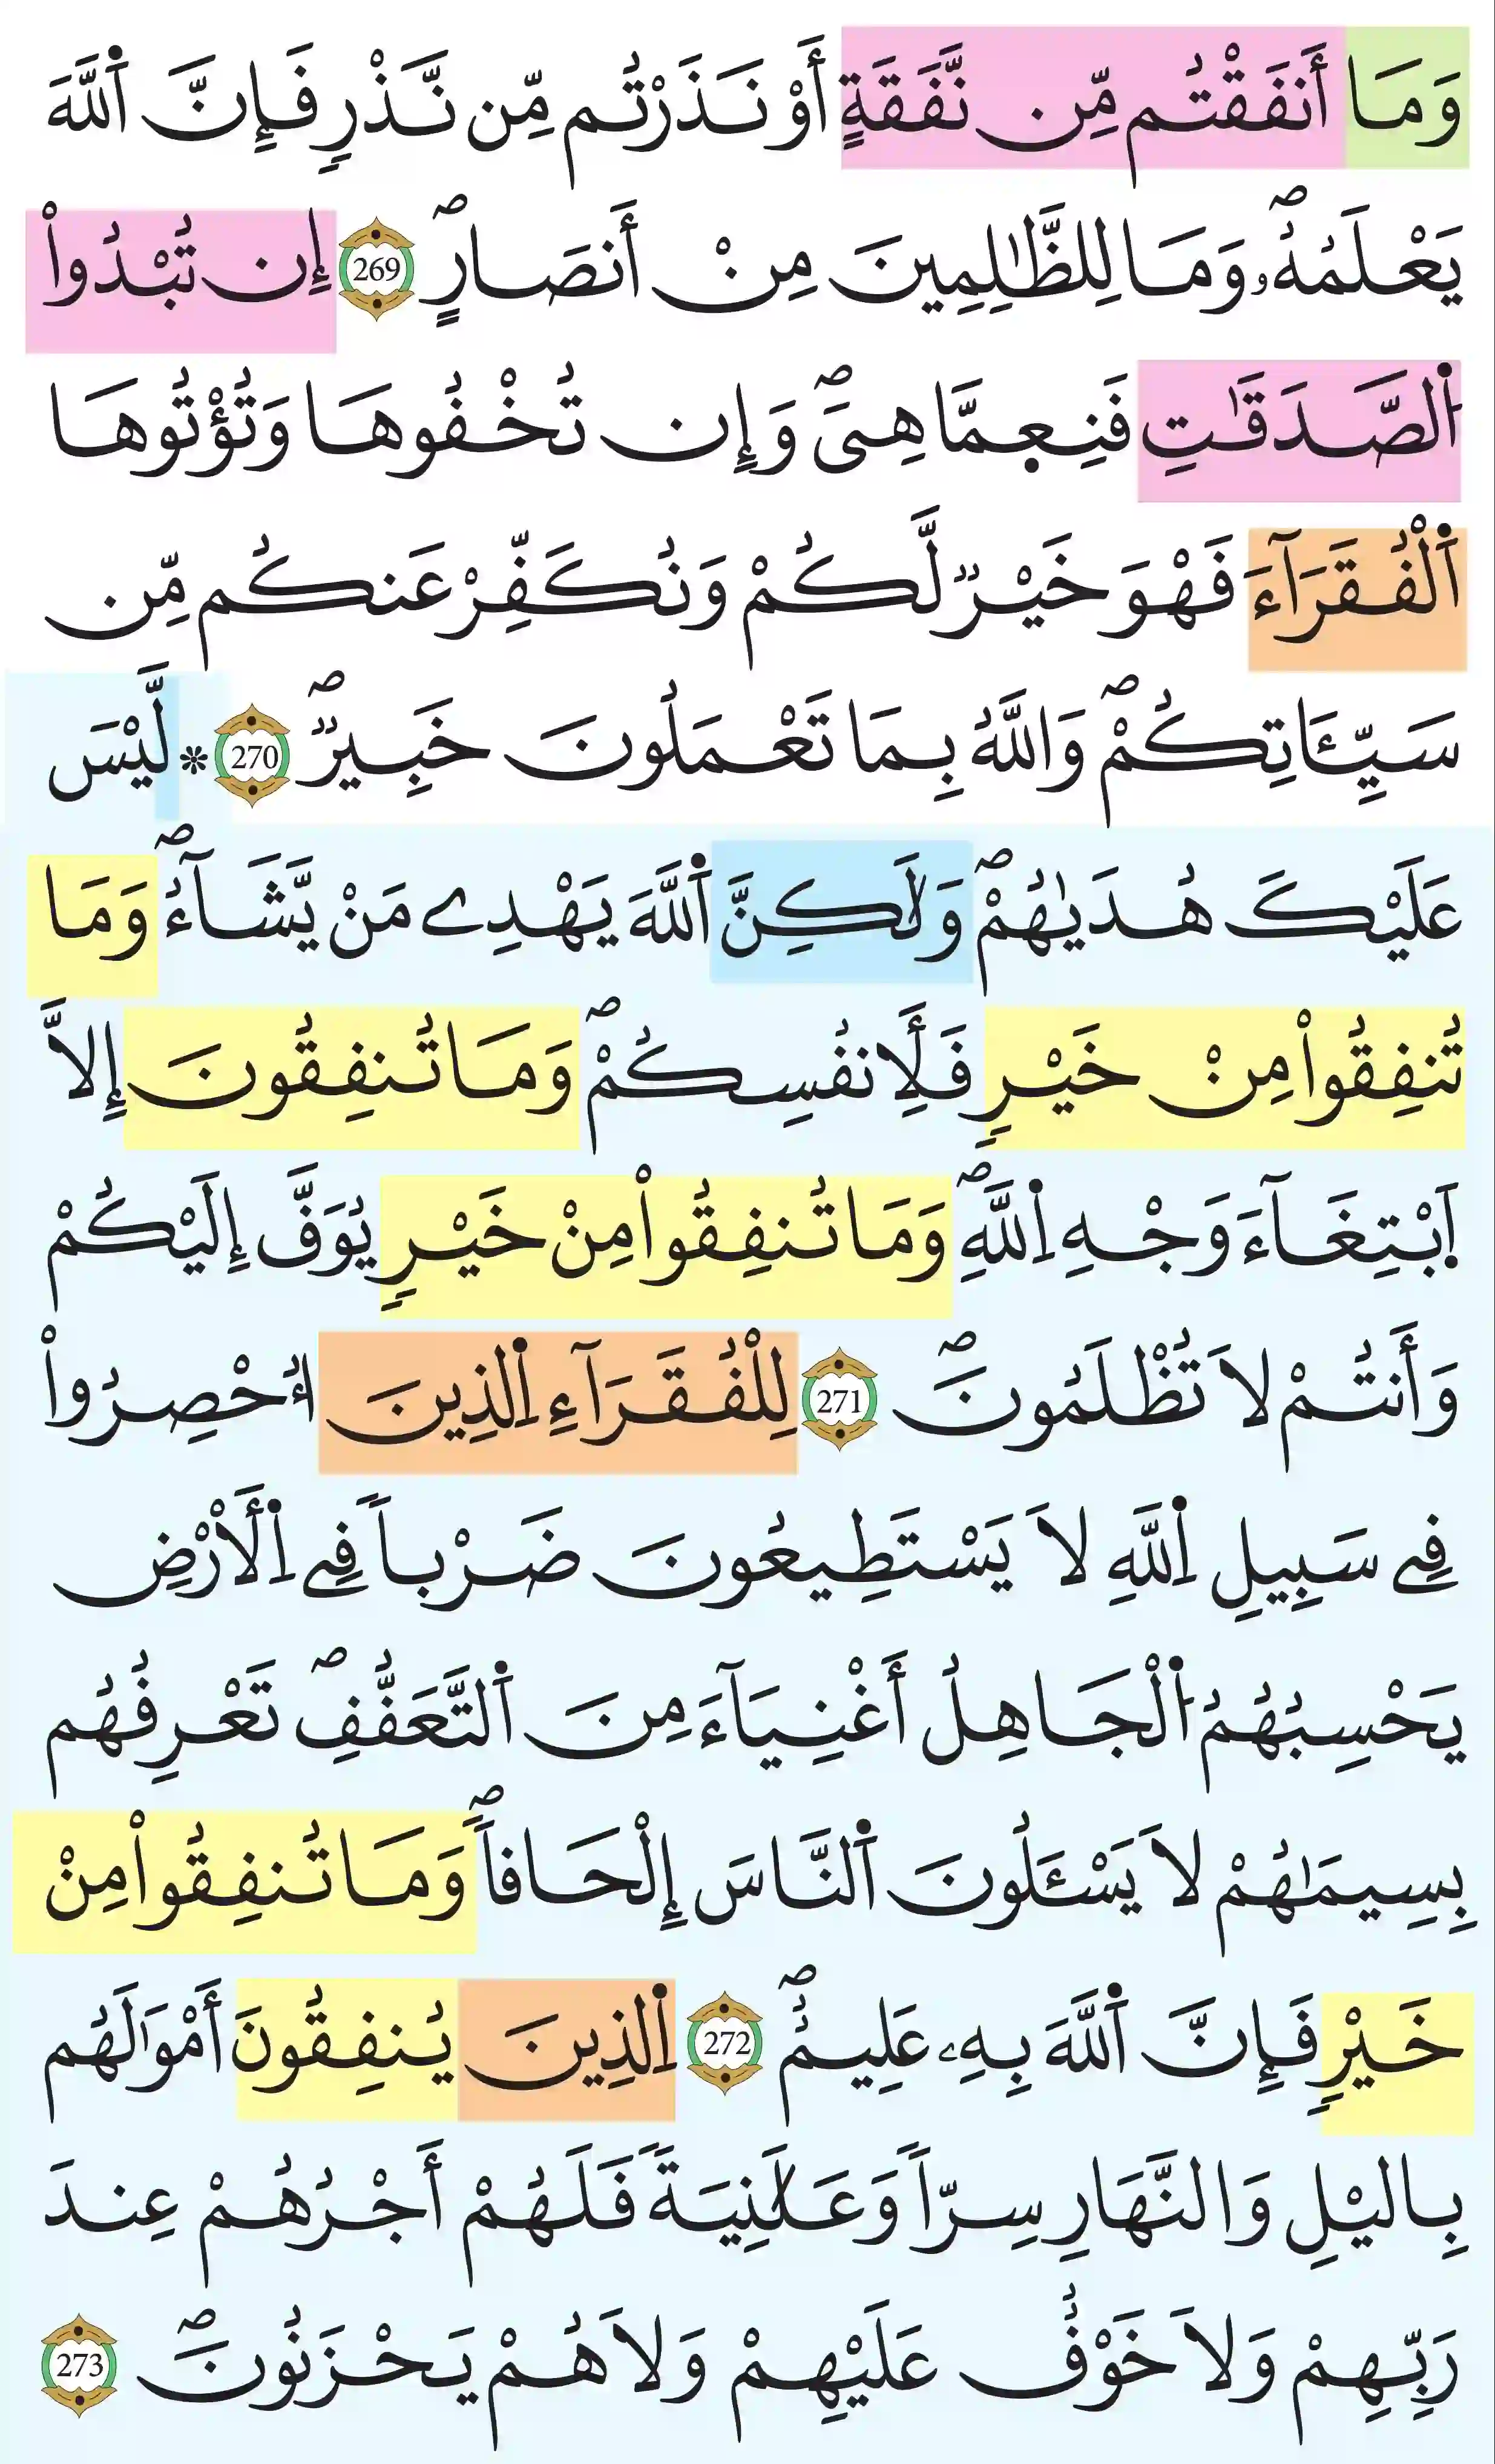 وَمَا أَنفَقْتُم مِّن نَّفَقَةٍ أَوْ نَذَرْتُم مِّن نَّذْرٍ فَإِنَّ اَ۬للَّهَ
يَعْلَمُهُۥۖ وَمَا لِلظَّٰلِمِينَ مِنْ أَنصَارٍۖ 269 إِن تُبْدُواْ
اُ۬لصَّدَقَٰتِ فَنِعِمَّا هِيَۖ وَإِن تُخْفُوهَا وَتُؤْتُوهَا
اَ۬لْفُقَرَآءَ فَهْوَ خَيْرٞ لَّكُمْ وَنُكَفِّرْ عَنكُم مِّن
سَيِّـَٔاتِكُمْۖ وَاللَّهُ بِمَا تَعْمَلُونَ خَبِيرٞۖ 270 * لَّيْسَ
عَلَيْكَ هُدَيٰهُمْۖ وَلَٰكِنَّ اَ۬للَّهَ يَهْدِے مَنْ يَّشَآءُۖ وَمَا
تُنفِقُواْ مِنْ خَيْرٍ فَلِأَنفُسِكُمْۖ وَمَا تُنفِقُونَ إِلَّا
اَ۪بْتِغَآءَ وَجْهِ اِ۬للَّهِۖ وَمَا تُنفِقُواْ مِنْ خَيْرٍ يُوَفَّ إِلَيْكُمْ
وَأَنتُمْ لَا تُظْلَمُونَۖ 271 لِلْفُقَرَآءِ اِ۬لذِينَ أُحْصِرُواْ
فِے سَبِيلِ اِ۬للَّهِ لَا يَسْتَطِيعُونَ ضَرْباٗ فِے اِ۬لْأَرْضِ
يَحْسِبُهُمُ اُ۬لْجَاهِلُ أَغْنِيَآءَ مِنَ اَ۬لتَّعَفُّفِۖ تَعْرِفُهُم
بِسِيمَٰهُمْ لَا يَسْـَٔلُونَ اَ۬لنَّاسَ إِلْحَافاٗۖ وَمَا تُنفِقُواْ مِنْ
خَيْرٍ فَإِنَّ اَ۬للَّهَ بِهِۦ عَلِيمٌۖ 272 اِ۬لذِينَ يُنفِقُونَ أَمْوَٰلَهُم
بِاليْلِ وَالنَّهَارِ سِرّاٗ وَعَلَٰنِيَةٗ فَلَهُمْ أَجْرُهُمْ عِندَ
رَبِّهِمْ وَلَا خَوْفٌ عَلَيْهِمْ وَلَا هُمْ يَحْزَنُونَۖ 273